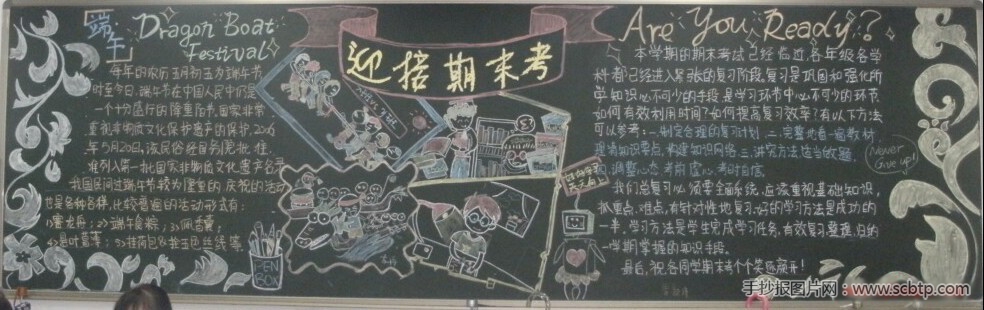 「端午」
Dragon Boat
Festival
每年的农历五月初五为端午节
时至今日,端午节在中国人民中仍是
一个十分盛行的隆重节日,国家非常
重视非物质文化保护遗产的保护,2006
年5月20日,该民俗经国务院批准
准列入第一批国家非物质文化遗产名录
我国民间过端午节较为隆重的,庆祝的活动
也是各种各样,比较普遍的活动形式有:
1>赛龙舟;2>端午食粽;3>佩香囊;
4>悬叶菖蒲;5>
PEN
BOX
迎接期末考
Are You Ready?
本学期的期末考试已经临近,各年级各学
科都已经进入紧张的复习阶段,复习是巩固和强化所
学知识必不可少的手段,是学习环节中必不可少的环节.
如何有效利用时间?如何提高复习效率?有以下方法
可以参考:一.制定合理的复习计划.二.完整地看一遍教材
理清知识要点,构建知识网络.三.讲究方法,适当做题.
四.调整心态,考前虚心,考时自信.
Never
Give up!
我们总复习必须要全面系统,应该重视基础知识,
抓重点、难点,有针对性地复习.好的学习方法是成功的
一半.学习方法是学生完成学习任务,有效复习,整理,归纳
一学期掌握的知识手段.
最后,祝各同学期末考个个笑逐颜开!
手抄报图片网:www.scbtp.com